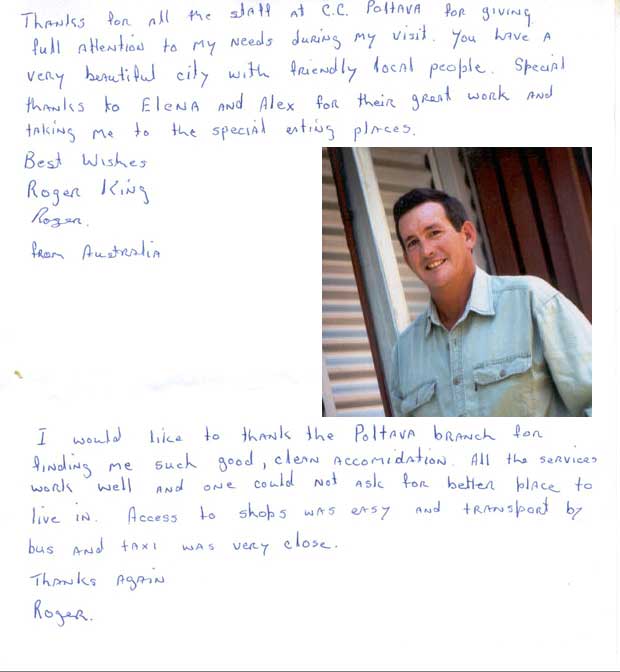 Thanks for all the staff at C.C. Poltava for giving
full attention to my needs during my visit. You have a
very beautiful city with friendly local people. Special
thanks to Elena and Alex for their great work and
taking me to the special eating places.
Best Wishes
Roger King
Roger.
from Australia
I would like to thank the Poltava branch for
finding me such good, clean accomidation. All the services
work well and one could not ask for better place to
live in. Access to shops was easy and transport by
bus and taxi was very close.
Thanks again
Roger.